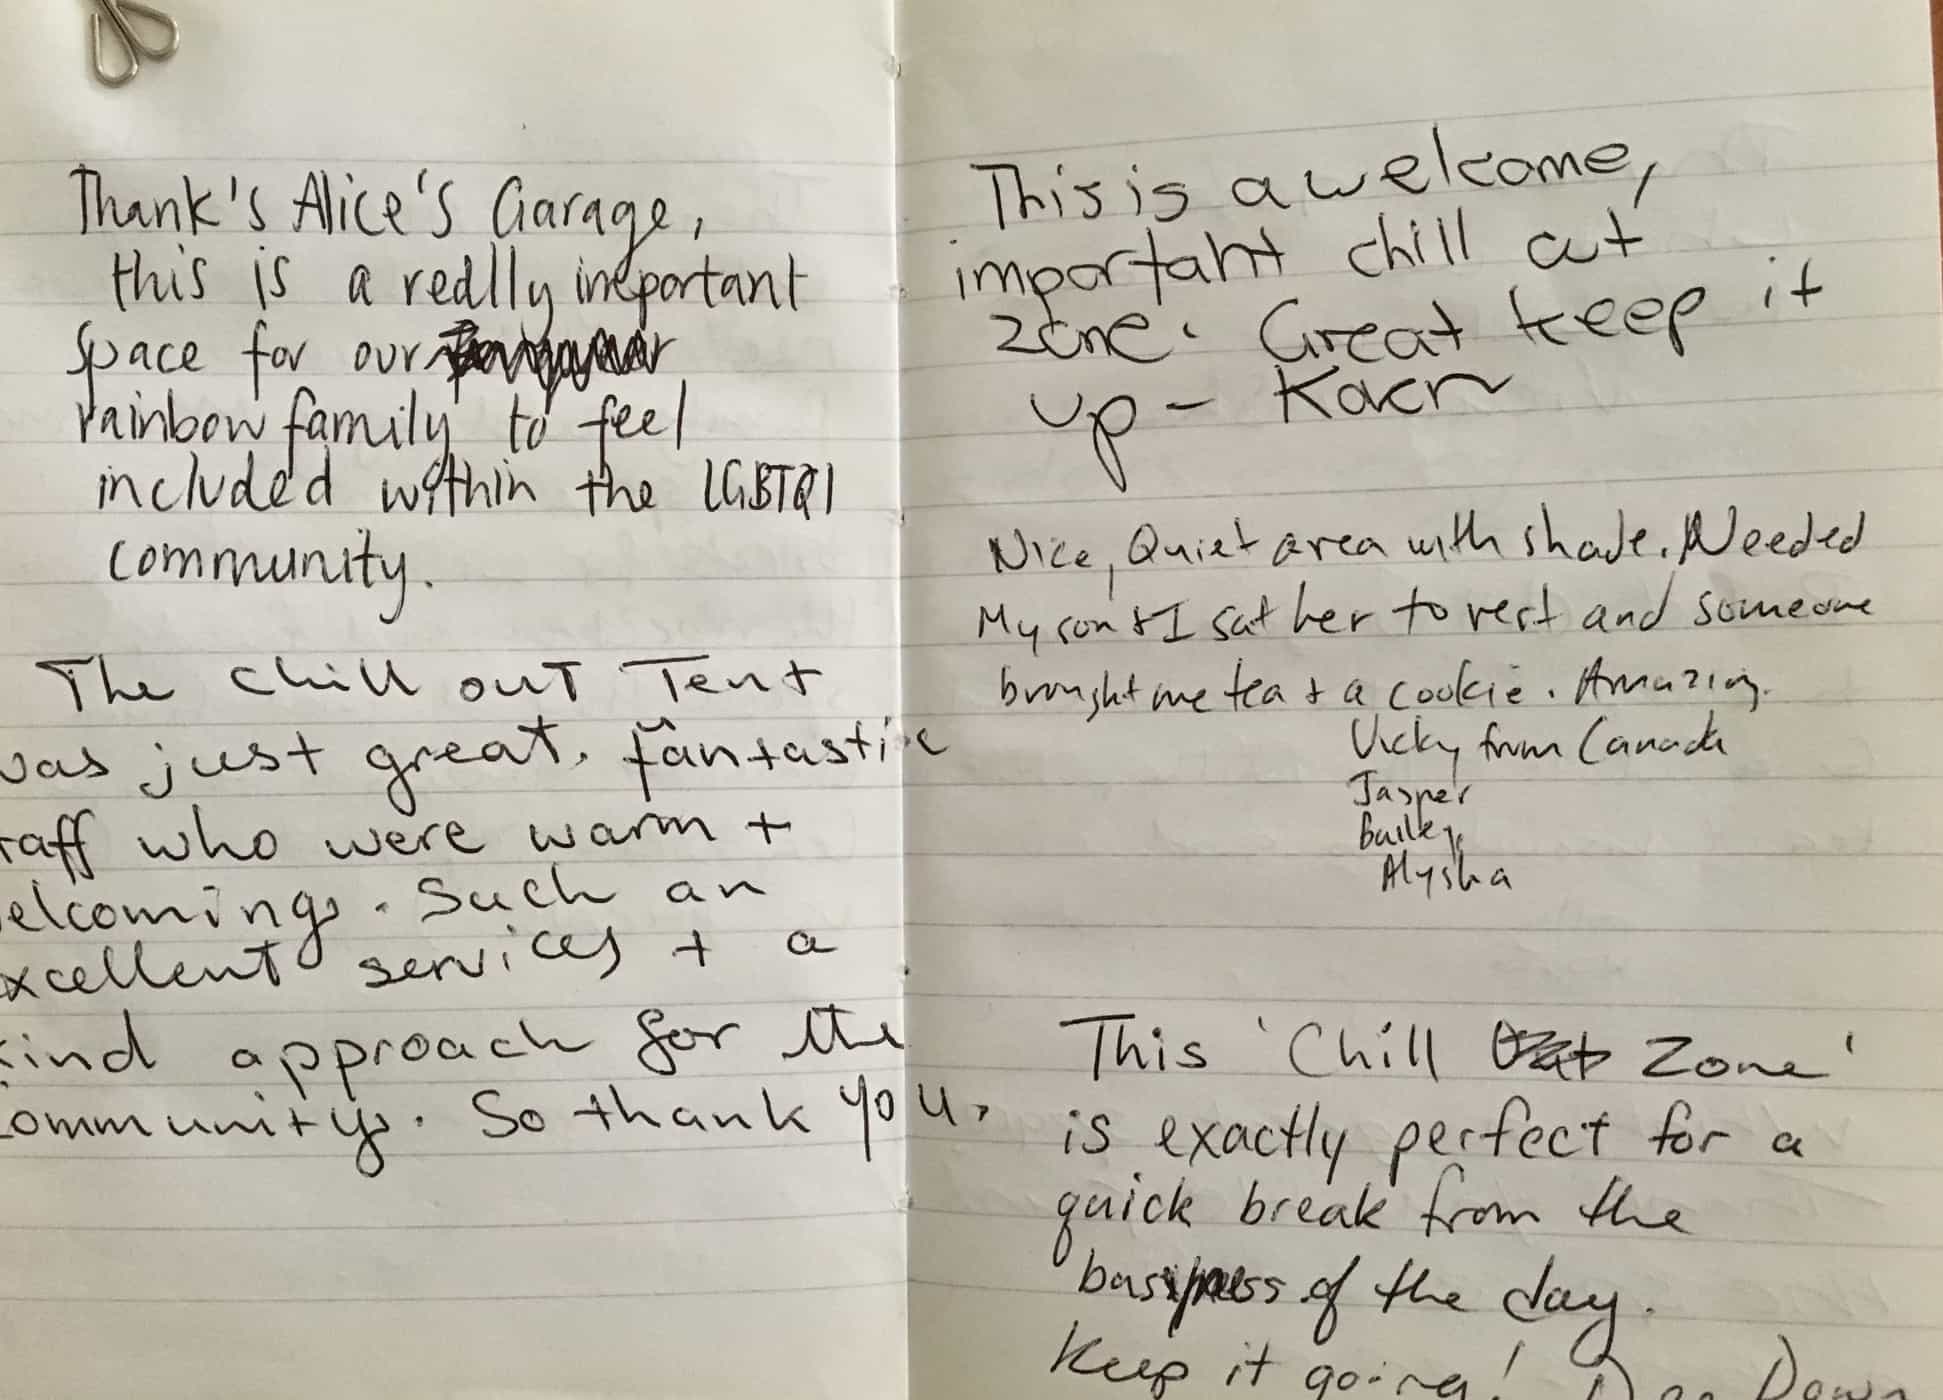 Thank's Alice's Garage,
this is a really important
space for our
rainbow family to feel
included within the LGBTQI
community.
The chill out Tent
was just great. fantastic
taff who were warm +
elcoming. Such an
xcellent services + a
kind approach for the
community. So thank you.
This is a welcome,
important chill out
zone. Great keep it
up - Karn
Nice, Quiet area with shade. Needed
My son & I sat her to rest and someone
brought me tea + a cookie. Amazing.
Vicky from Canada
Jasper
Bailey
Alysha
This 'Chill Out Zone'
is exactly perfect for a
quick break from the
of the day.
Keep it going!